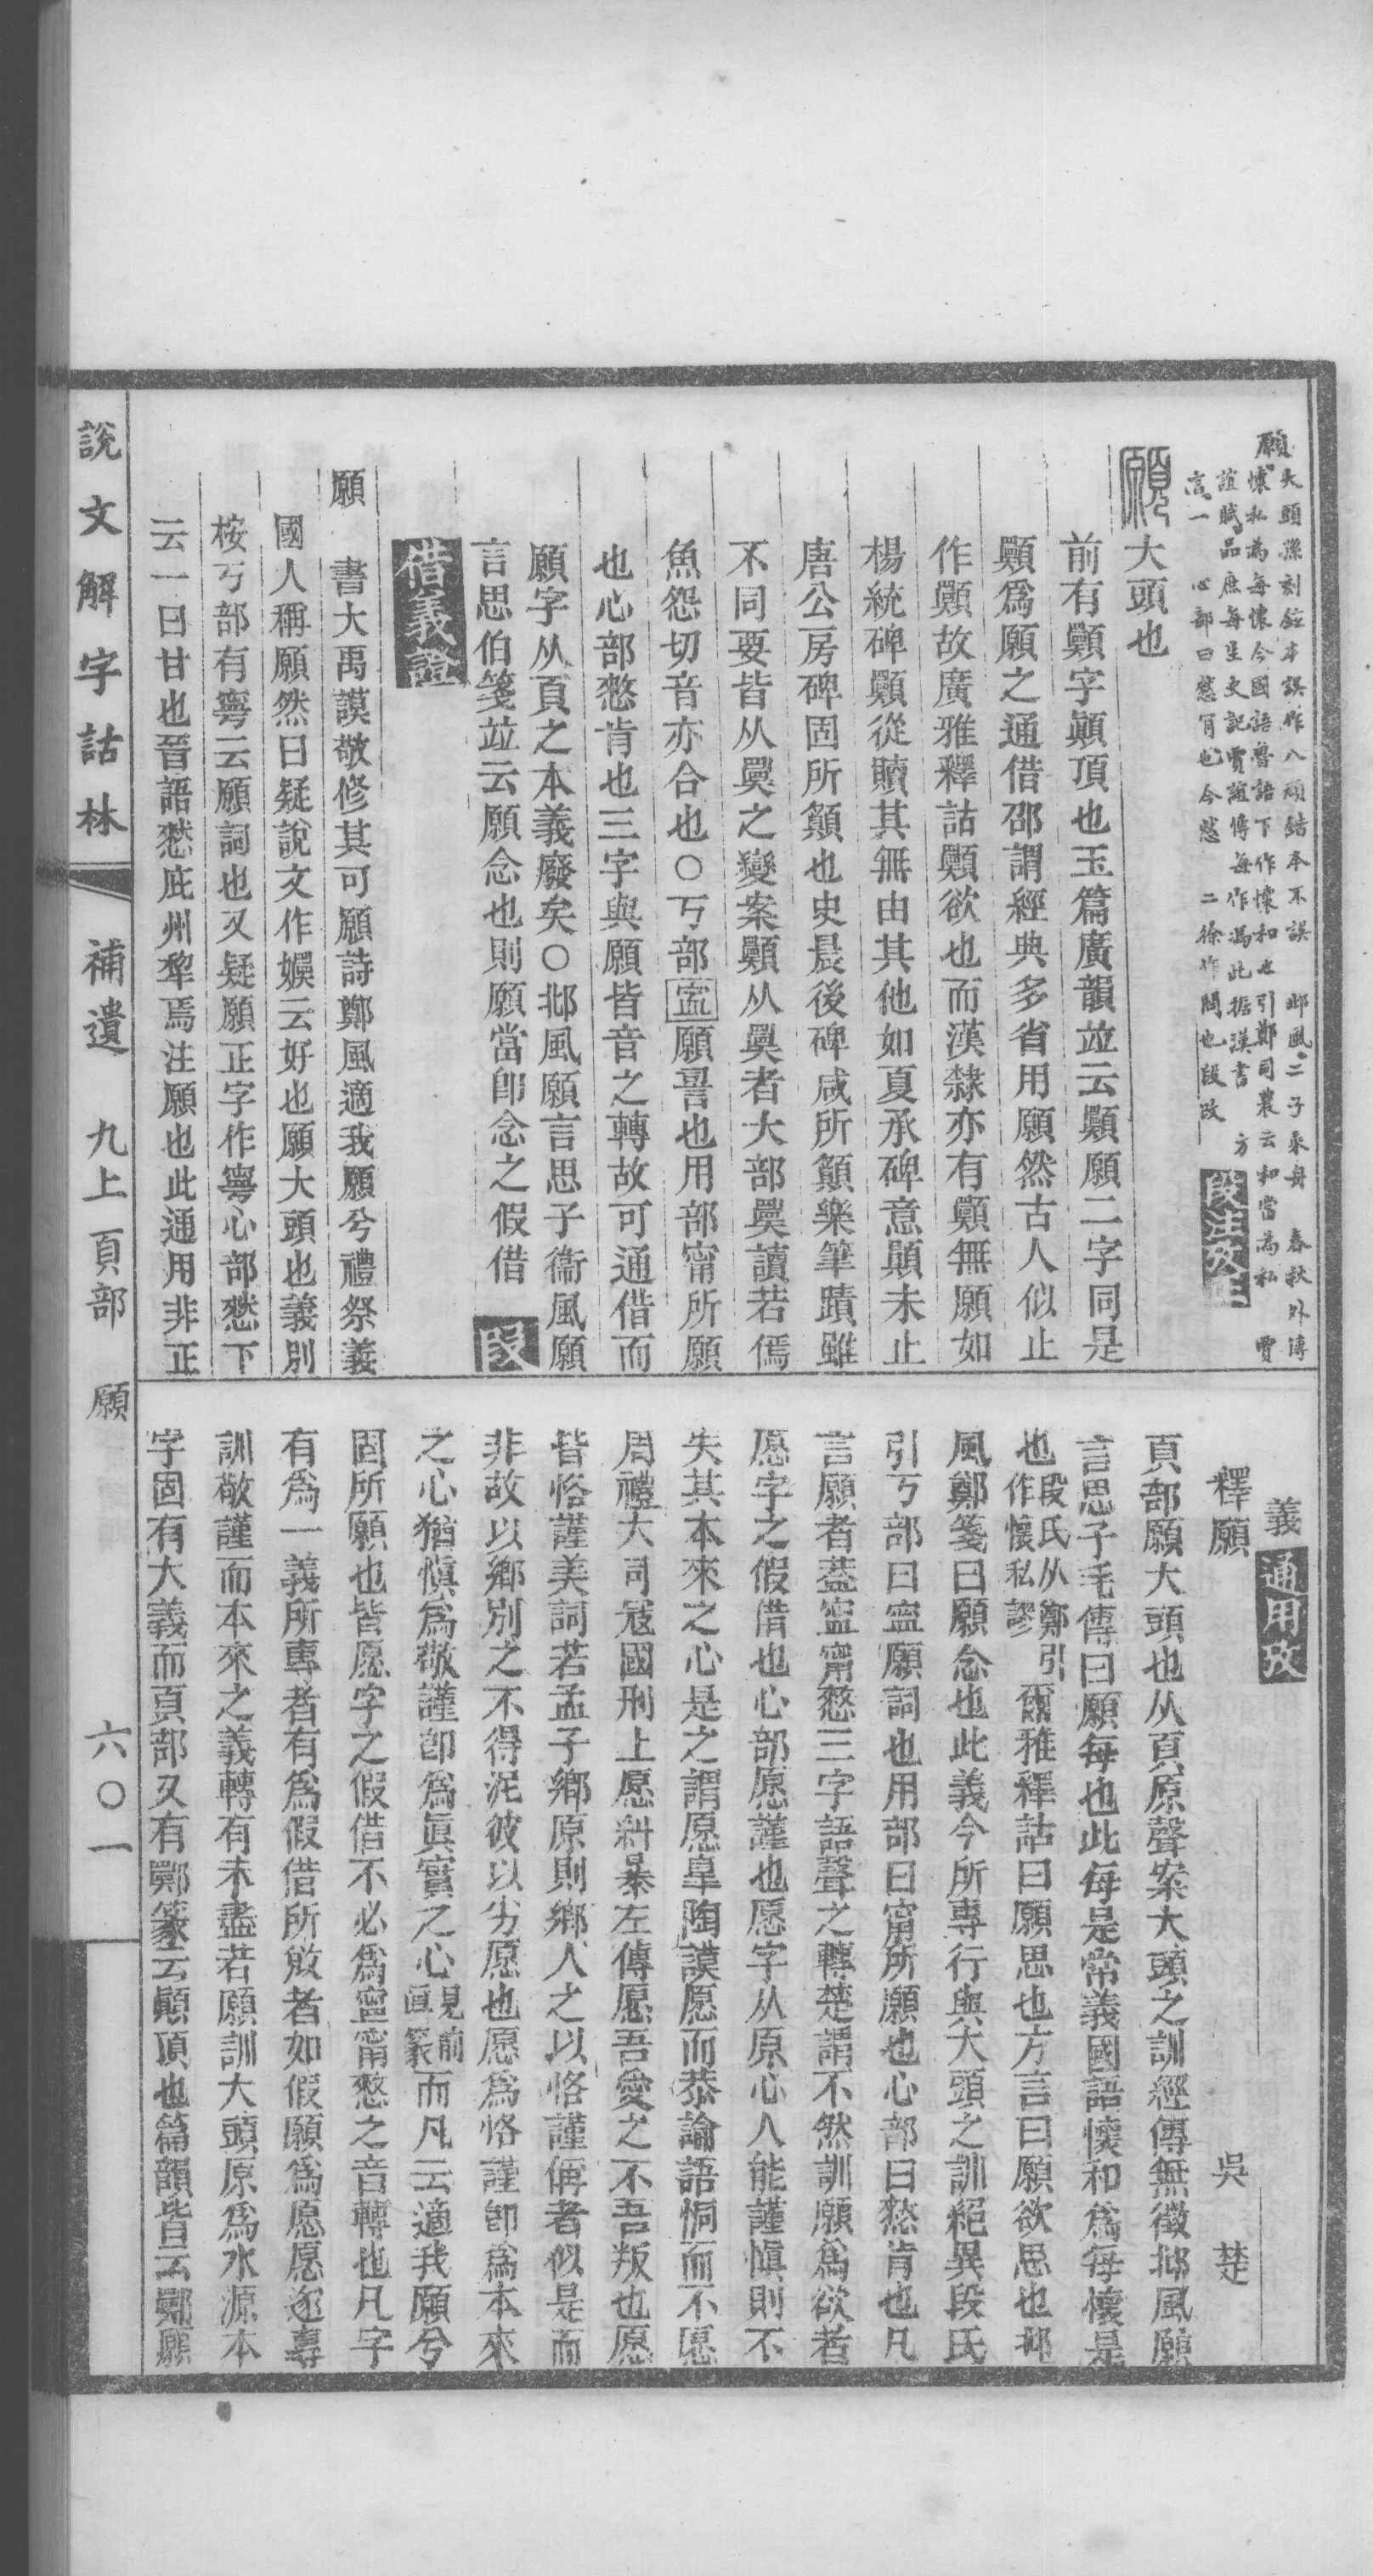 願 大頭 孫刻鉉本誤作八頭結本不誤 邶風二子乘舟 春秋外傳
懷私為每懷今國語魯語下作懷和也引鄭司農云和當為私 賈
誼賦品庶每生史記賈誼傳每作馮此據漢書 方
言一 心部曰憖肯也今憖 二徐作閒也段改
段注攷正
願 大頭也
前有顠字顚頂也玉篇廣韻竝云顠願二字同是
顠爲願之通借邵謂經典多省用願然古人似止
作顠故廣雅釋詁顠欲也而漢隸亦有顠無願如
楊統碑顠從贖其無由其他如夏承碑意顠未止
唐公房碑固所顠也史晨後碑咸所顠樂筆蹟雖
不同要皆从㒸之變案顠从㒸者大部㒸讀若傿
魚怨切音亦合也○丂部寍願䛐也用部甯所願
也心部憖肯也三字與願皆音之轉故可通借而
願字从頁之本義廢矣○邶風願言思子衞風願
言思伯箋竝云願念也則願當卽念之假借 段
借義證
願 書大禹謨敬修其可願詩鄭風適我願兮禮祭義
國人稱願然曰疑說文作娛云好也願大頭也義別
桉丂部有寧云願詞也又疑願正字作寧心部憖下
云一曰甘也晉語憖庇州犂焉注願也此通用非正
義 通用攷
釋願 吳楚
頁部願大頭也从頁原聲案大頭之訓經傳無徵邶風願
言思子毛傳曰願每也此每是常義國語懷和爲每懷是
也段氏从鄭引作懷私謬 爾雅釋詁曰願思也方言曰願欲思也邶
風鄭箋曰願念也此義今所專行與大頭之訓絕異段氏
引丂部曰寍願詞也用部曰甯所願也心部曰憖肯也凡
言願者蓋寍甯憖三字語聲之轉楚謂不然訓願爲欲者
愿字之假借也心部愿謹也愿字从原心人能謹愼則不
失其本來之心是之謂愿皐陶謨愿而恭論語侗而不愿
周禮大司寇國刑上愿糾暴左傳愿吾愛之不吾叛也愿
皆恪謹美詞若孟子鄉原則鄉人之以恪謹偁者似是而
非故以鄉別之不得泥彼以劣愿也愿爲恪謹卽爲本來
之心猶愼爲敬謹卽爲眞實之心見前直篆而凡云適我願兮
固所願也皆愿字之假借不必爲寍甯憖之音轉也凡字
有爲一義所專者有爲假借所敚者如假願爲愿愿遂專
訓敬謹而本來之義轉有未盡若願訓大頭原爲水源本
字固有大義而頁部又有顠篆云顚頂也篇韻皆云顠願
說文解字詁林 補遺 九上頁部 願 六○一